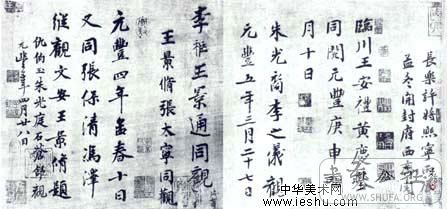 長樂許將熙寧
開封府西
臨川王安禮黃慶基
同閱元豐庚申
月十日
朱光裔李之儀觀
元豐五年三月二十七日
李秬王景通同觀
王景脩張太寧同觀
元豐四年孟春十日
又同張保清馮澤
縱觀文安王景脩題
仇伯玉朱光庭石蒼舒觀
元豐年四月廿八日
中华美术网
www.ieshu.com
WWW.SHUFA.ORG